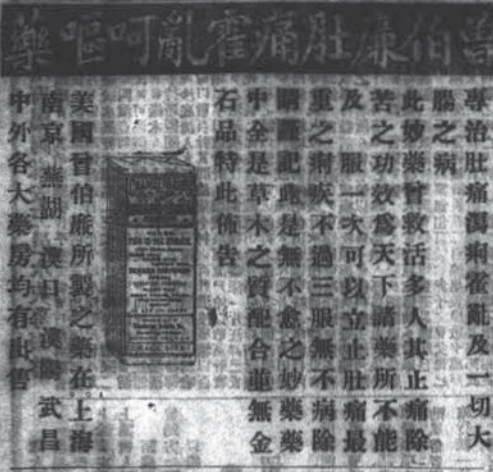 曾伯廉肚痛霍亂呵嘔藥
專治肚痛瀉痢霍亂及一切大
腸之病
此妙藥曾救活多人其止痛除
苦之功效爲天下諸藥所不能
及 服一次可以立止肚痛最
重之痢疾不過三服無不病除
記此是無不愈之妙藥藥
中全是草木之質配合並無金
石品特此佈告
美國曾伯廉所製之藥在上海
南京 蕪湖 漢口 漢陽 武昌
中外各大藥房均有出售